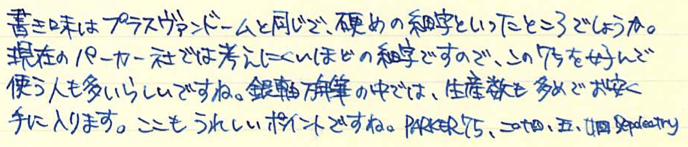 書き味はプラスヴァンドームと同じで、硬めの細字といったところでしょうか。
現在のパーカー社では考えにくいほどの細字ですので、この75を好んで
使う人も多いらしいですね。銀軸万年筆の中では、生産数も多めでお安く
手に入ります。ここもうれしいポイントですね。PARKER75、